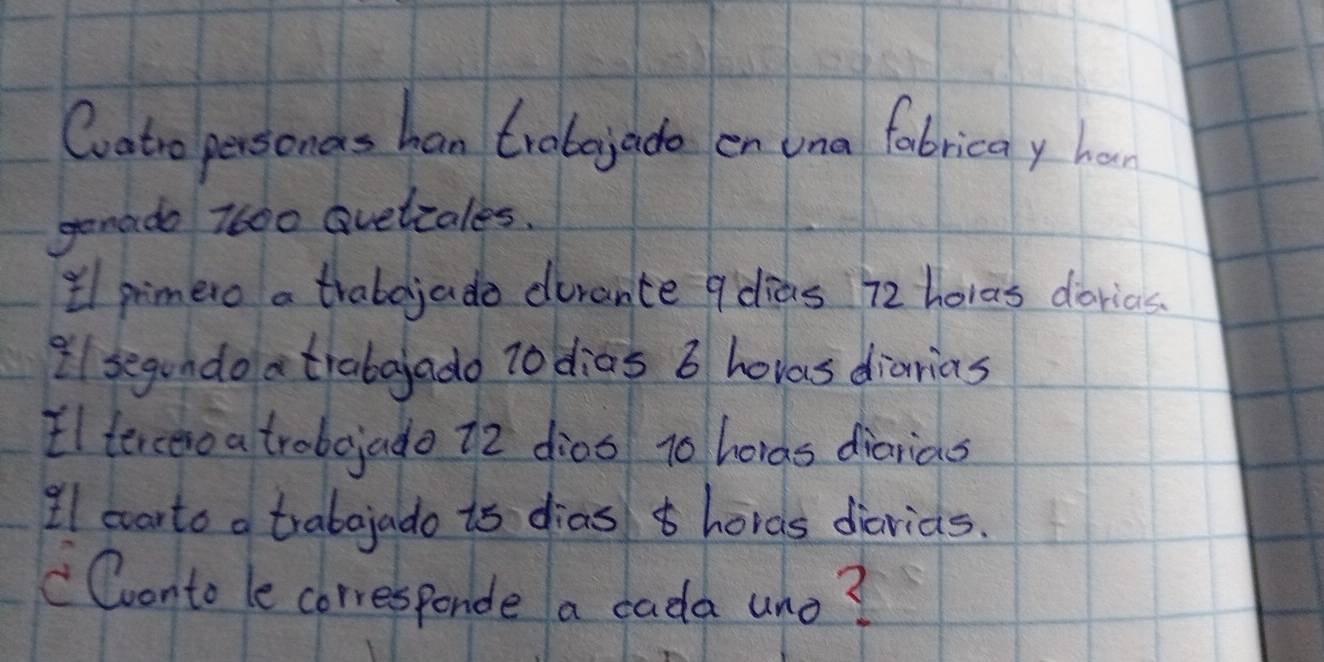 Cuatro personas han trabajado en una fabrica y han
ganado 1600 Quetzales.
El primero a trabajado durante 9 dias 12 horas diarias.
El segundo a trabajado 10 dias 6 horas diarias
El tercero a trabajado 12 dias 10 horas diarias
El cuarto a trabajado 15 dias 8 horas diarias.
¿Cuanto le corresponde a cada uno?